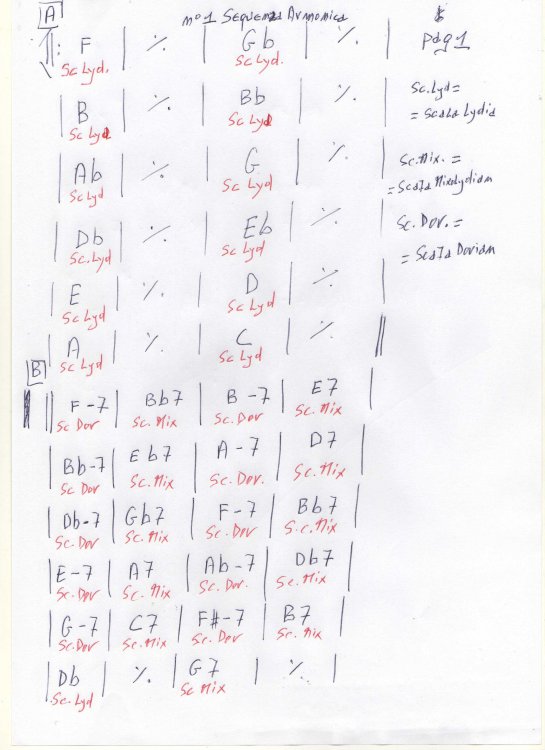 A nº1 Sequenza Armonica
||: F | ٪ | Gb | ٪ | pag 1
Sc Lyd. Sc Lyd.
| B | ٪ | Bb | ٪ | Sc. Lyd =
Sc Lyd Sc Lyd = Scala Lydia
| Ab | ٪ | G | ٪ | Sc. Mix. =
Sc Lyd Sc Lyd = Scala Mixolydian
| Db | ٪ | Eb | ٪ | Sc. Dor. =
Sc. Lyd Sc Lyd = Scala Dorian
| E | ٪ | D | ٪ |
Sc Lyd Sc Lyd
| A | ٪ | C | ٪ ||
Sc Lyd Sc Lyd
B
|| F-7 | Bb7 | B-7 | E7 |
Sc Dor Sc. Mix Sc. Dor Sc. Mix
| Bb-7 | Eb7 | A-7 | D7 |
Sc Dor Sc. Mix Sc. Dor. Sc. Mix
| Db-7 | Gb7 | F-7 | Bb7 |
Sc. Dor Sc. Mix Sc. Dor S.c. Mix
| E-7 | A7 | Ab-7 | Db7 |
Sc. Dor Sc. Mix Sc. Dor. Sc. Mix
| G-7 | C7 | F#-7 | B7 |
Sc. Dor Sc. Mix Sc. Dor Sc. Mix
| Db | ٪ | G7 | ٪ |
Sc. Lyd Sc Mix